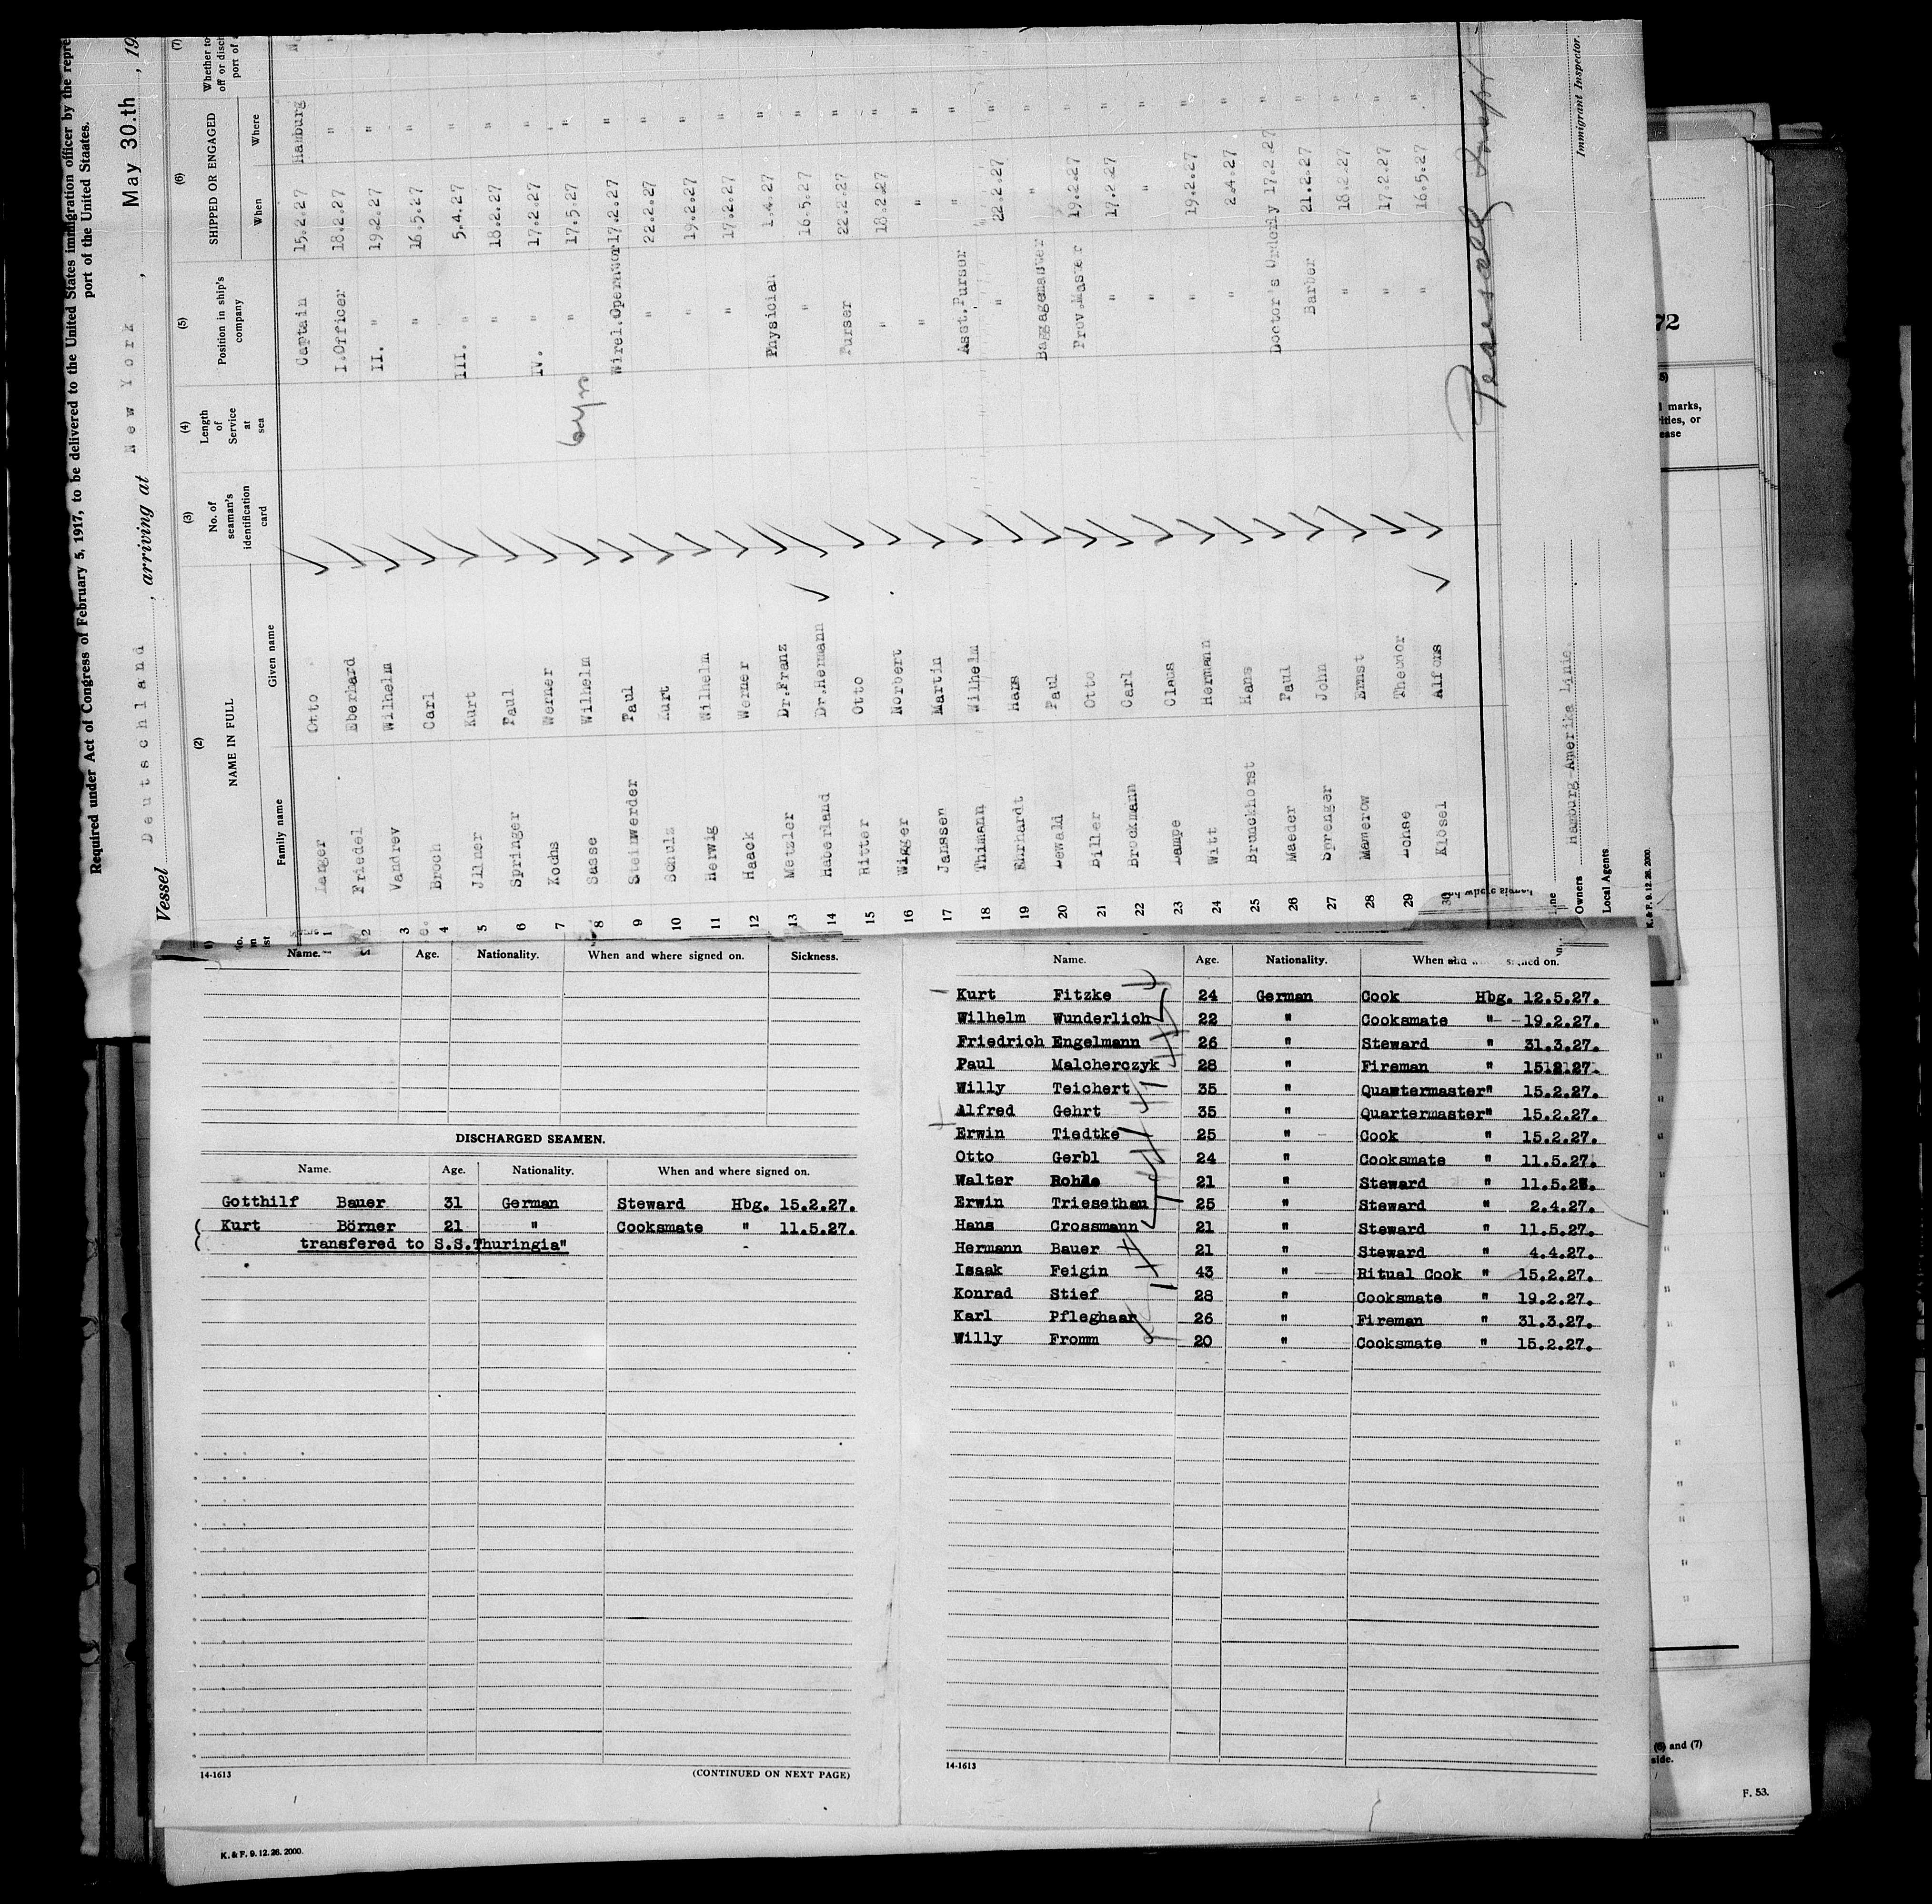 Required under Act of Congress of February 5, 1917, to be delivered to the United States immigration officer by the repre
port of the United Staates.
Vessel Deutschland, arriving at New York, May 30.th, 19
(2) (3) (4) (5) (6) (7)
NAME IN FULL No. of seaman's identification card Length of Service at sea Position in ship's company SHIPPED OR ENGAGED Whether to
off or disch
port of
Family name Given name When Where
1 Langer Otto Captain 15.2.27 Hamburg
2 Friedel Eberhard I.Officer 18.2.27 "
3 Vandrev Wilhelm II. " 19.2.27 "
4 Broch Carl " 16.5.27 "
5 Jllner Kurt III. " 5.4.27 "
6 Springer Paul " 18.2.27 "
7 Kochs Werner IV. " 17.2.27 "
8 Sasse Wilhelm 6 yrs " 17.5.27 "
9 Steinwerder Paul Wirel.Operator 17.2.27 "
10 Schulz Kurt " 22.2.27 "
11 Herwig Wilhelm " 19.2.27 "
12 Haack Werner " 17.2.27 "
13 Metzler Dr.Franz Physician 1.4.27 "
14 Haberland Dr.Hermann " 16.5.27 "
15 Ritter Otto Purser 22.2.27 "
16 Wigger Norbert " 18.2.27 "
17 Janssen Martin " " "
18 Thimann Wilhelm Asst.Pursor " "
19 Ehrhardt Hans " 22.2.27 "
20 Lewald Paul Baggagemaster " "
21 Biller Otto Prov.Master 19.2.27 "
22 Brockmann Carl " 17.2.27 "
23 Lampe Claus " " "
24 Witt Hermann " 19.2.27 "
25 Brunckhorst Hans " 2.4.27 "
26 Maeder Paul Doctor's Orderly 17.2.27 "
27 Sprenger John Barber 21.2.27 "
28 Mamerow Ernst " 18.2.27 "
29 Lohse Theodor " 17.2.27 "
30 Klösel Alfons " 16.5.27 "
Immigrant Inspector.
Owners Hamburg-Amerika Linie.
Local Agents
K. & F. 9. 12. 26. 2000.
Name. Age. Nationality. When and where signed on. Sickness.
DISCHARGED SEAMEN.
Name. Age. Nationality. When and where signed on.
Gotthilf Bauer 31 German Steward Hbg. 15.2.27.
Kurt Börner 21 " Cooksmate " 11.5.27.
transfered to S.S.Thuringia"
14-1613 (CONTINUED ON NEXT PAGE)
K. & F. 9. 12. 26. 2000.
Name. Age. Nationality. When and signed on.
Kurt Fitzke 24 German Cook Hbg. 12.5.27.
Wilhelm Wunderlich 22 " Cooksmate " 19.2.27.
Friedrich Engelmann 26 " Steward " 31.3.27.
Paul Malcherczyk 28 " Fireman "
Willy Teichert 35 " Quartermaster" 15.2.27.
Alfred Gehrt 35 " Quartermaster" 15.2.27.
Erwin Tiedtke 25 " Cook " 15.2.27.
Otto Gerbl 24 " Cooksmate " 11.5.27.
Walter 21 " Steward " 11.5.27.
Erwin Triesethan 25 " Steward " 2.4.27.
Hans Crossmann 21 " Steward " 11.5.27.
Hermann Bauer 21 " Steward " 4.4.27.
Isaak Feigin 43 " Ritual Cook " 15.2.27.
Konrad Stief 28 " Cooksmate " 19.2.27.
Karl Pfleghaar 26 " Fireman " 31.3.27.
Willy Fromm 20 " Cooksmate " 15.2.27.
14-1613
72
marks,
rities, or
ease
(6) and (7)
side.
F. 53.